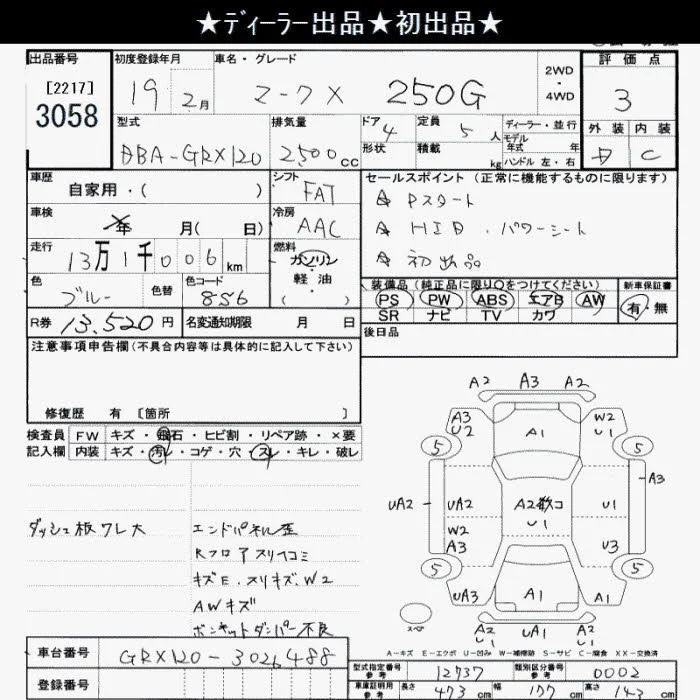 ★ディーラー出品★初出品★
出品番号 初度登録年月 車名・グレード 2WD・4WD 評価点
[2217] 3058 19 2月 マークX 250G 3
型式 排気量 ドア 定員 ディーラー・並行 外装 内装
DBA-GRX120 2500cc 4 5人 モデル年式 年 C
形状 積載 kg ハンドル 左・右
車歴 シフト セールスポイント(正常に機能するものに限ります)
自家用・( ) FAT ☆ Pスタート
車検 年 月( 日) 冷房 AAC ☆ HID.パワーシート
走行 13万1千006km 燃料 ガソリン・軽油( ) ☆ 初出品
色 色替 色コード 装備品(純正品に限り○をつけてください) 新車保証書
ブルー 8S6 PS PW ABS エアB AW 有・無
SR ナビ TV カワ
R券 13.520円 名変通知期限 月 日 後日品
注意事項申告欄(不具合内容等は具体的に記入して下さい)
修復歴 有 [箇所 ]
検査員 FW キズ・飛石・ヒビ割・リペア跡・×要
記入欄 内装 キズ・汚レ・コゲ・穴・スレ・キレ・破レ
A2 A3 A2
A3 U2 W2 U1
5 A1 5
A3
UA2 UA2 A2歓コ U1 U1
W2 A3 U3
5 5
UA3 A1 A1
スペア A2 U1 UA1 A2 U1
ダッシュ板ワレ大
エンドパネル歪
Rフロアスリヘコミ
キズE.スリキズ.W2
AWキズ
ボンネットダンパー不良
A-キズ E-エクボ U-凹み W-補修跡 S-サビ C-腐食 XX-交換済
車台番号 GRX120-3026488
型式指定番号 参考 12737 類別区分番号 参考 0002
登録番号 車庫証明用 参考 長さ 473cm 幅 177cm 高さ 143cm